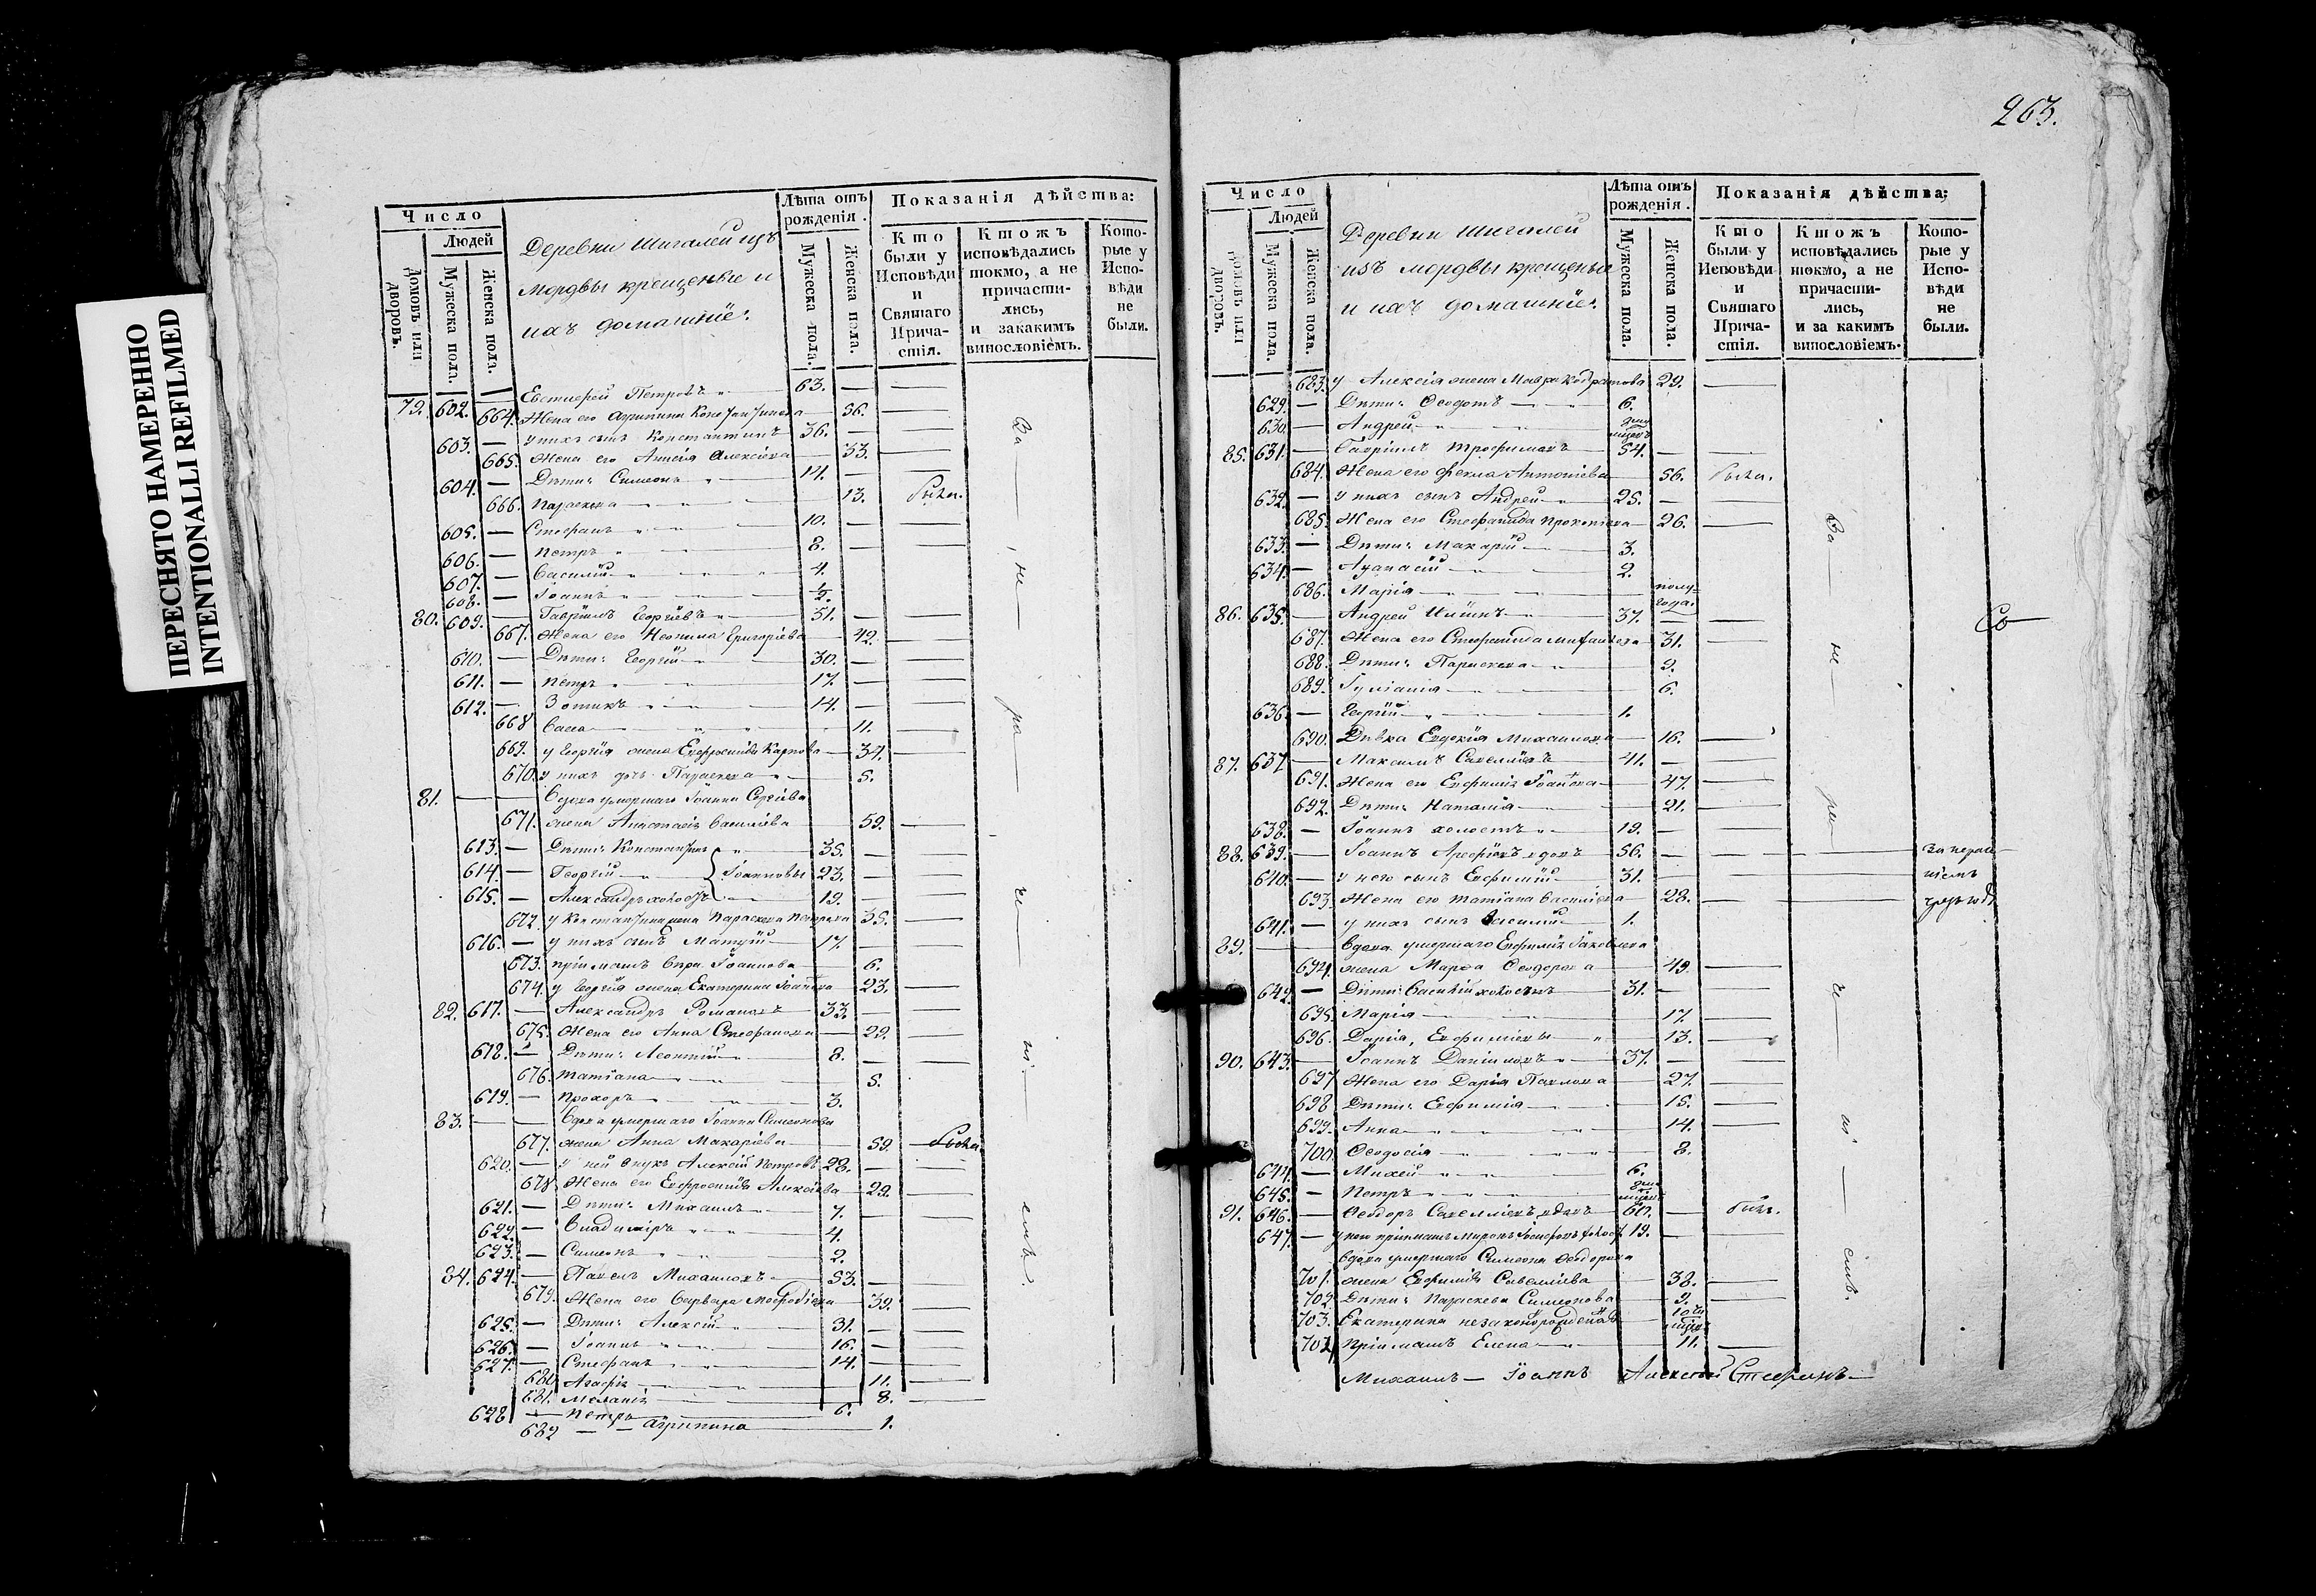 263.
ПЕРЕСНЯТО НАМЕРЕННО
INTENTIONALLI REFILMED
Число
Людей
Домовъ или дворовъ.
Мужеска пола.
Женска пола.
Деревни Шигалей изъ
мордвы крещеные и
ихъ домашніе:
Лѣта отъ рожденія.
Мужеска пола.
Женска пола.
Показанія дѣйства:
Кто были у Исповѣди и Святаго Причастія.
Ктожъ исповѣдались токмо, а не причастились, и закакимъ винословіемъ.
Которые у Исповѣди не были.
79. 602. — Евстифей Петровъ 63. —
664. Жена его Агрипина 56.
603. — у нихъ сынъ Константинъ 36. —
665. Жена его Анисія Алексіева 33.
604. — Дѣти: Симеонъ 14. —
666. Параскева 13.
605. — Стефанъ 10. —
606. — Петръ 8. —
607. — Василій 4.
608. — Іоаннъ ½.
80. 609. — Гавріилъ Георгіевъ 51. —
667. Жена его Неонила Григоріева 42.
610. — Дѣти: Георгій 30. —
611. — Петръ 17. —
612. — Зотикъ 14. —
668 Васса 11.
669. у Георгія жена Евфросинія Карпова 34.
670. у нихъ дочь Параскева 5.
81. — — Вдова умершаго Іоанна Сергіева
671. жена Анастасія Василіева 59.
613. — Дѣти: Константинъ 35. —
614. — Георгій Іоанновы 23. —
615. — Александръ холостъ 19. —
672. у Константина жена Параскева Петрова 35.
616. — у нихъ сынъ Матѳій 17. —
673. пріимышъ Іоаннова 6.
674. у Георгія жена Екатерина 23.
82. 617. — Александръ Романовъ 33. —
675. Жена его Анна Стефанова 29.
618. — Дѣти: Леонтій 8. —
676. Татіана 5.
619. — Прохоръ 3.
83. — — Вдова умершаго Іоанна Симеонова
677. жена Анна Макаріева 59.
620. — у ней внукъ Алексій Петровъ 28. —
678 Жена его Евфросинія Алексіева 29.
621. — Дѣти: Михаилъ 7.
622. — Владиміръ 4.
623. — Симеонъ 2.
84. 624. — Павелъ Михаиловъ 53. —
679. Жена его Варвара 39.
625. — Дѣти: Алексій 31. —
626. — Іоаннъ 16. —
627. — Стефанъ 14. —
680. Агафія 11.
681. Меланія 8.
628 — Петръ 6.
682 — — Агрипина 1.
За не ра че ні емъ.
Число
Людей
Домовъ или дворовъ.
Мужеска пола.
Женска пола.
Деревни Шигалей
изъ мордвы крещеные
и ихъ домашніе:
Лѣта отъ рожденія.
Мужеска пола.
Женска пола.
Показанія дѣйства:
Кто были у Исповѣди и Святаго Причастія.
Ктожъ исповѣдались токмо, а не причастились, и за какимъ винословіемъ.
Которые у Исповѣди не были.
683. у Алексія жена Мавра Кодратова 29.
629. — Дѣти: Ѳеодотъ 6.
630. — Андрей
85. 631. — Гавріилъ Трофимовъ 54. —
684. Жена его Фекла Антоніева 56.
632. — у нихъ сынъ Андрей 25. —
685. Жена его Стефанида Прокопіева 26.
633. — Дѣти: Макарій 3.
634. — Аѳанасій 2.
686. Марія полугода.
86. 635. — Андрей Иліинъ 37. —
687. Жена его Стефанида 31.
688. Дѣти: Параскева 9.
689. Іуліанія 6.
636. — Георгій 1.
690. Дѣвка Евдокія Михаилова 16.
87. 637 — Максимъ Савеліевъ 41. —
691. Жена его Евфимія Іоаннова 47.
692. Дѣти: Наталія 21.
638. — Іоаннъ холостъ 19. —
88. 639. — Іоаннъ Арефіевъ вдовъ 56. —
640. — у него сынъ Евфимій 31. —
693. Жена его Татіана Василіева 28.
641. — у нихъ сынъ Василій 1.
89. — — Вдова умершаго Евфимія Іаковлева
694. жена Марѳа Ѳеодорова 49.
642. — Дѣти: Василій холостъ 31. —
695. Марія 17.
696. Дарія, Евфиміевы 13.
90. 643. — Іоаннъ Даніиловъ 37. —
697 Жена его Дарія Павлова 27.
698 Дѣти: Евфимія 15.
699. Анна 14.
700. Ѳеодосія 8.
644. — Михей 6.
645. — Петръ
91. 646. — Ѳеодоръ Савеліевъ вдовъ 60. —
647. — у него пріимышъ Миронъ 19. —
вдова умершаго Симеона Ѳеодорова
701. жена Евфимія Савеліева 38.
702. Дѣти: Параскева Симеонова 9.
703. Екатерина незаконорожденая
704 Пріимышъ Елена 11.
За не ра че ні емъ.
Михаилъ — Іоаннъ Алексій Стефанъ